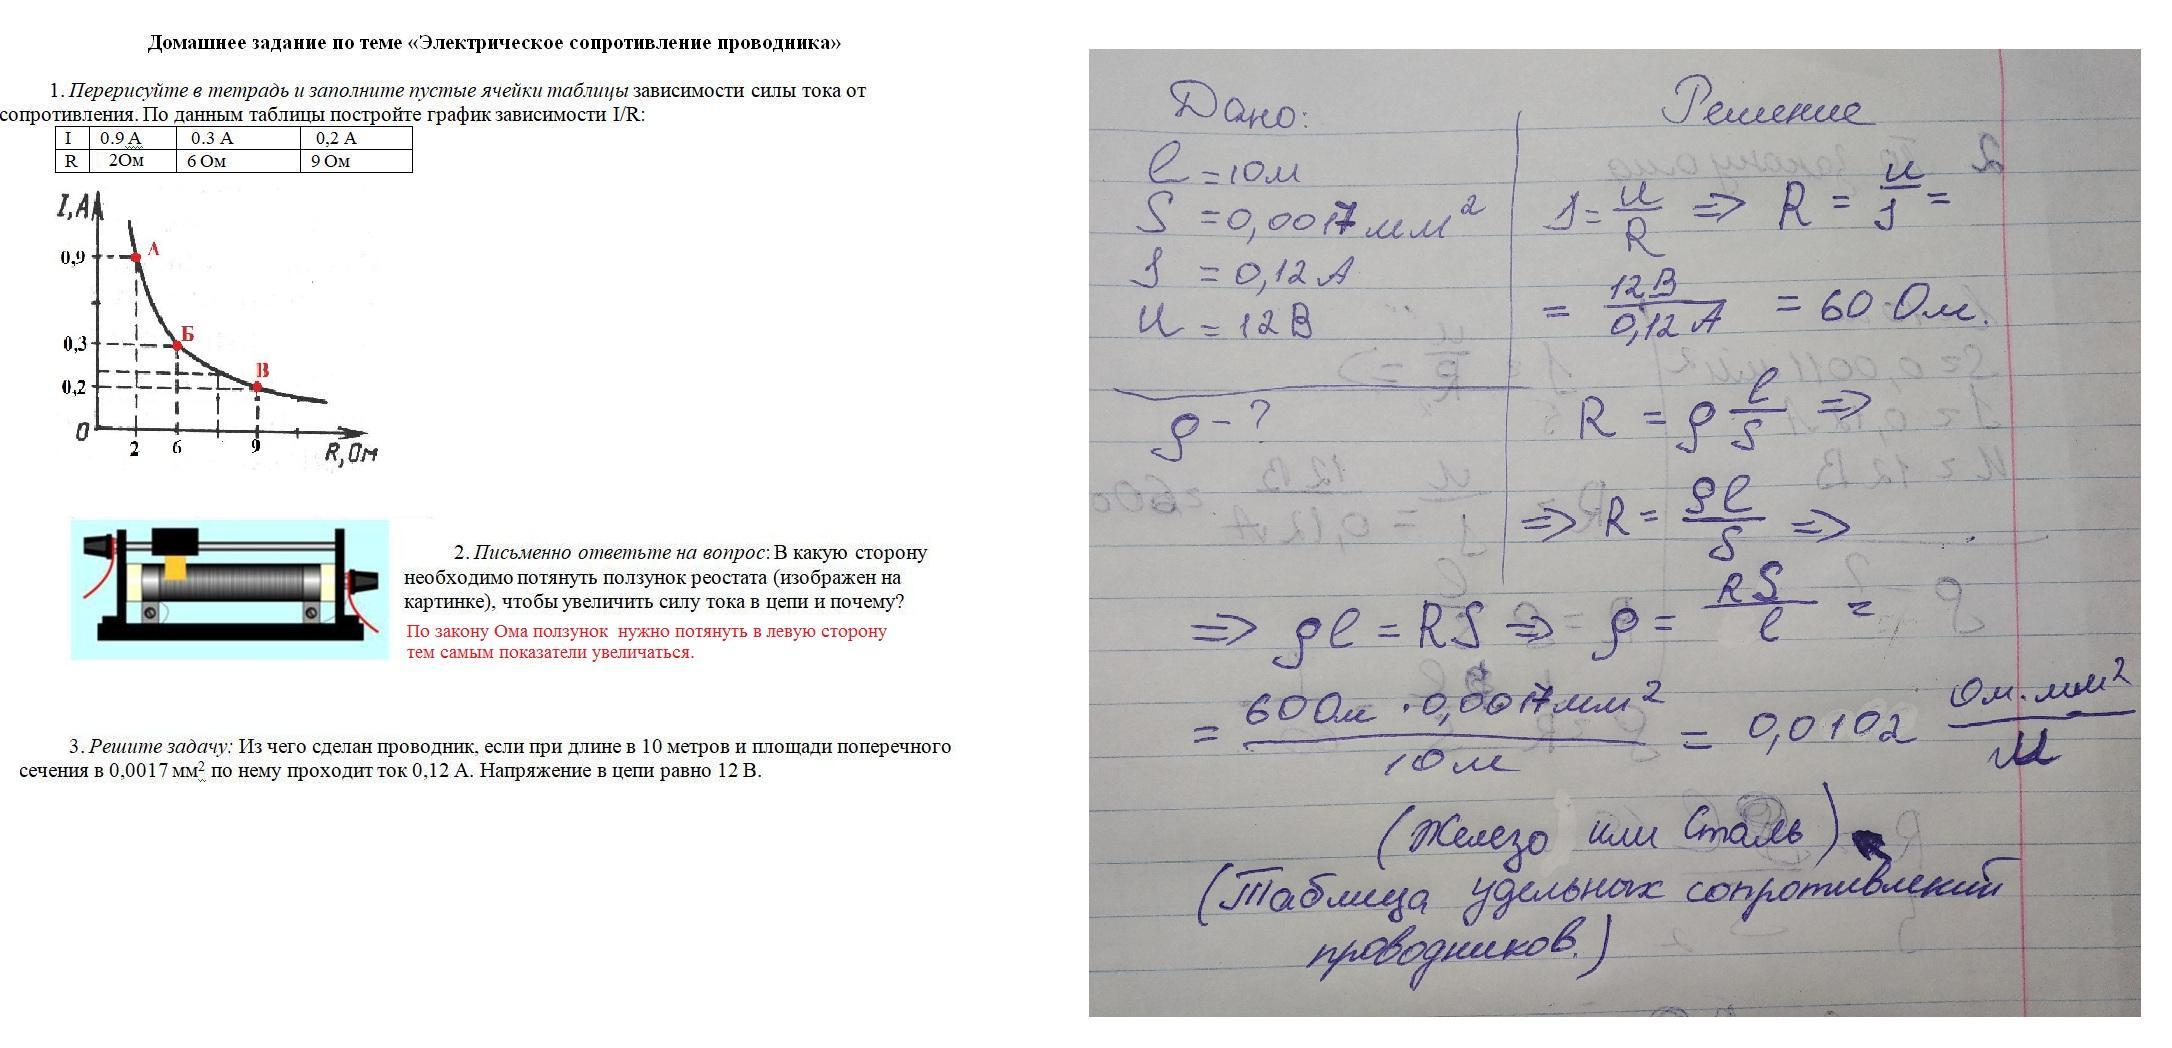 Домашнее задание по теме «Электрическое сопротивление проводника»
1. Перерисуйте в тетрадь и заполните пустые ячейки таблицы зависимости силы тока от
сопротивления. По данным таблицы постройте график зависимости I/R:
I 0.9 А 0.3 А 0,2 А
R 2Ом 6 Ом 9 Ом
I,А
0,9
А
Б
0,3
В
0,2
0
2 6 9
R,Ом
2. Письменно ответьте на вопрос: В какую сторону
необходимо потянуть ползунок реостата (изображен на
картинке), чтобы увеличить силу тока в цепи и почему?
По закону Ома ползунок нужно потянуть в левую сторону
тем самым показатели увеличаться.
3. Решите задачу: Из чего сделан проводник, если при длине в 10 метров и площади поперечного
сечения в 0,0017 мм² по нему проходит ток 0,12 А. Напряжение в цепи равно 12 В.
Дано:
l = 10м
S = 0,0017 мм²
I = 0,12 А
U = 12 В
ρ - ?
Решение
I = U/R => R = U/I =
= 12В/0,12 А = 60 Ом.
R = ρ l/S =>
=> R = ρl/S =>
=> ρl = RS => ρ = RS/l =
= 60 Ом · 0,0017 мм²/10 м = 0,0102 Ом·мм²/м
(Железо или Сталь)
(Таблица удельных сопротивлений
проводников.)